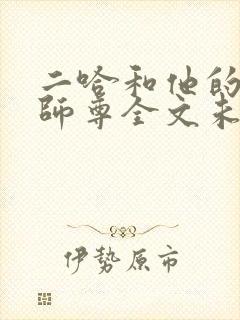 二哈和他的
師尊全文未
伊勢原市